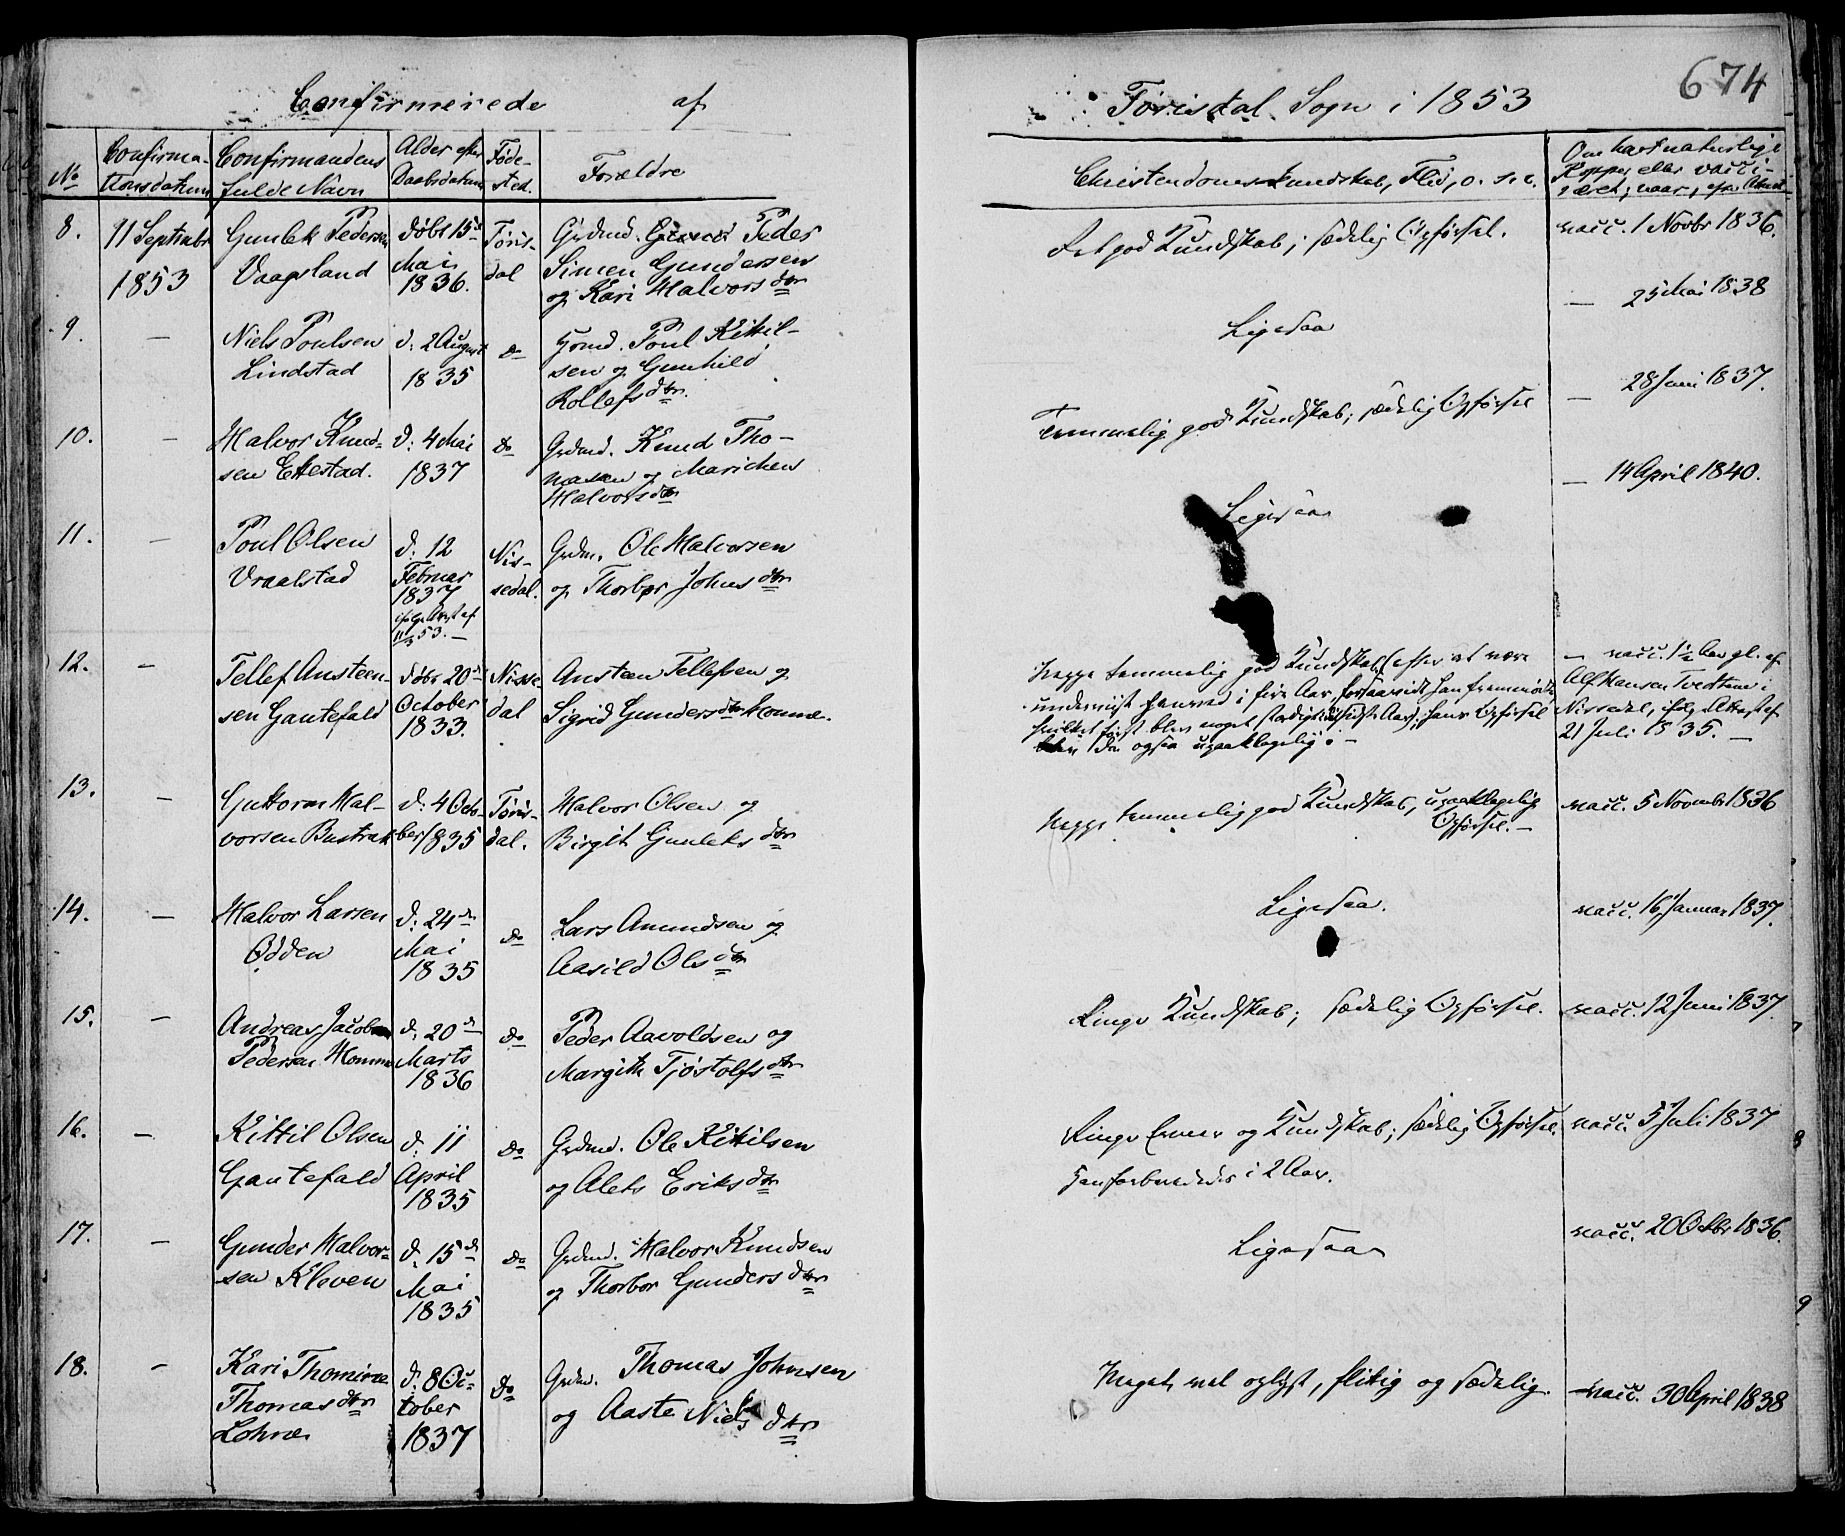 674
Confirmerede af
Torisdal Sogn i 1853
No
Confirma-
tionsdatum
Confirmandens
fulde Navn
Alder efter
Daabsdatum
Føde-
sted.
Forældre
Christendoms-Kundskab, Flid, o. s. v.
Om havt naturlige
Kopper, eller vacci-
neret, naar, efter Attest
8.
11 Septembr
1853
Gunlek Pedersen
Vaagsland
døbt 15de
Mai
1836.
Tøris-
dal
Grdmd. Peder
Simen Gundersen
og Kari Halvorsdtr
Ret god Kundskab; sædelig Opførsel.
vacc. 1 Novbr 1836.
9.
—
Niels Poulsen
Lindstad
d: 2 August
1835
do
Grmd. Poul Kittil-
sen og Gunhild
Rollefsdtr.
Ligesaa
— 25 Mai 1838
10.
—
Halvor Knud-
sen Ettestad.
d: 4 Mai
1837
do
Grdmd. Knud Tho-
masen og Marichen
Halvorsdtr
Temmelig god Kundskab; sædelig Opførsel
— 28 Juni 1837.
11.
—
Poul Olsen
Vraalstad
d: 12
Februar
1837
ifølge Attest af
11/3 53. —
Nis-
sedal.
Grdm. Ole Halvorsen
og Thorbør Johnsdtr
Ligesaa
— 14 April 1840.
12.
—
Tellef Ansteen-
sen Gautefald
døbt 20de
October
1833.
Nisse-
dal
Ansteen Tellefsen og
Sigrid Gundersdtr Homme.
Neppe temmelig god Kundskab, efter at være
underviist i fire Aar, forsaavidt han fremmødte
hvilket først blev noget stadigt i sidste Aar; hans Opførsel
da ogsaa upaaklagelig. —
— vacc. 1½ Aar gl. af
Alf Hansen Tvedtene i
Nissedal, ifølge Attest af
21 Juli 1835. —
13.
—
Guttorm Hal-
vorsen Bustrak
d: 4 Octo-
ber 1835
Tøris-
dal.
Halvor Olsen og
Birgit Gunleksdtr
Neppe temmelig god Kundskab, upaaklagelig
Opførsel. —
vacc. 5 Novembr 1836
14.
—
Halvor Larsen
Ødden
d: 24de
Mai
1835
do
Lars Amundsen og
Aasild Olsdtr
Ligesaa.
vacc. 16 Januar 1837.
15.
—
Andreas Jacob
Pedersen Homme
d: 20de
Marts
1836
do
Peder Aavoldsen og
Margith Tjøstolfsdtr
Ringe Kundskab; sædelig Opførsel.
vacc. 12 Juni 1837.
16.
—
Kittil Olsen
Gautefald
d: 11
April
1835
do
Grdmd. Ole Kittilsen
og Alets Eriksdtr
Ringe Evner og Kundskab; sædelig Opførsel.
Han forberededes i 2 Aar.
vacc. 5 Juli 1837
17.
—
Gunder Halvor-
sen Kleven
d: 15de
Mai
1835
do
Grdmd. Halvor Knudsen
og Thorbor Gundersdtr
Ligesaa
vacc. 20 Octbr 1836.
18.
—
Kari Thomine
Thomasdtr
Lohne
d: 8 Oc-
tober
1837
do
Grdmd. Thomas Johnsen
og Aaste Nielsdtr
Meget vel oplyst, flittig og sædelig.
vacc. 30 April 1838